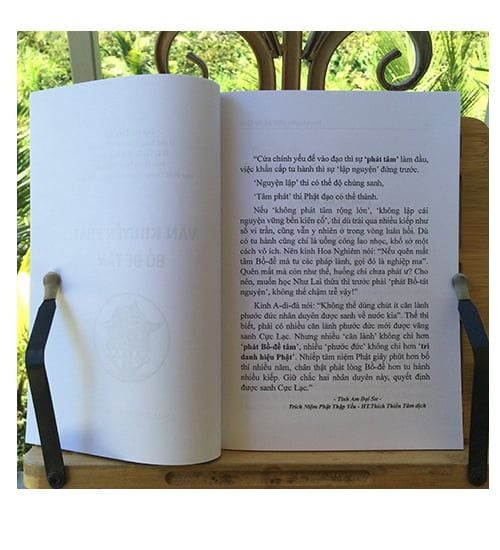 VĂN KHUYẾN PHÁT
BỒ ĐỀ TÂM
“Cửa chính yếu để vào đạo thì sự ‘phát tâm’ làm đầu,
việc khẩn cấp tu hành thì sự ‘lập nguyện’ đứng trước.
‘Nguyện lập’ thì có thể độ chúng sanh,
‘Tâm phát’ thì Phật đạo có thể thành.
Nếu ‘không phát tâm rộng lớn’, ‘không lập cái
nguyện vững bền kiên cố’, thì dù trải qua nhiều kiếp như
số vi trần, cũng vẫn y nhiên ở trong vòng luân hồi. Dù
có tu hành cũng chỉ là uổng công lao nhọc, khổ sở một
cách vô ích. Nên kinh Hoa Nghiêm nói: “Nếu quên mất
tâm Bồ-đề mà tu các pháp lành, gọi đó là nghiệp ma”.
Quên mất mà còn như thế, huống chi chưa phát ư? Cho
nên, muốn học Như Lai thừa thì trước phải ‘phát Bồ-tát
nguyện’, không thể chậm trễ vậy!”
Kinh A-di-đà nói: “Không thể dùng chút ít căn lành
phước đức nhân duyên được sanh về nước kia”. Thế thì
biết, phải có nhiều căn lành phước đức mới được vãng
sanh Cực Lạc. Nhưng nhiều ‘căn lành’ không chi hơn
‘phát Bồ-đề tâm’, nhiều ‘phước đức’ không chi hơn ‘trì
danh hiệu Phật’. Nhiếp tâm niệm Phật giây phút hơn bố
thí nhiều năm, chân thật phát lòng Bồ-đề hơn tu hành
nhiều kiếp. Giữ chắc hai nhân duyên này, quyết định
được sanh Cực Lạc.”
- Tỉnh Am Đại Sư -
Trích Niệm Phật Thập Yếu - HT.Thích Thiền Tâm dịch